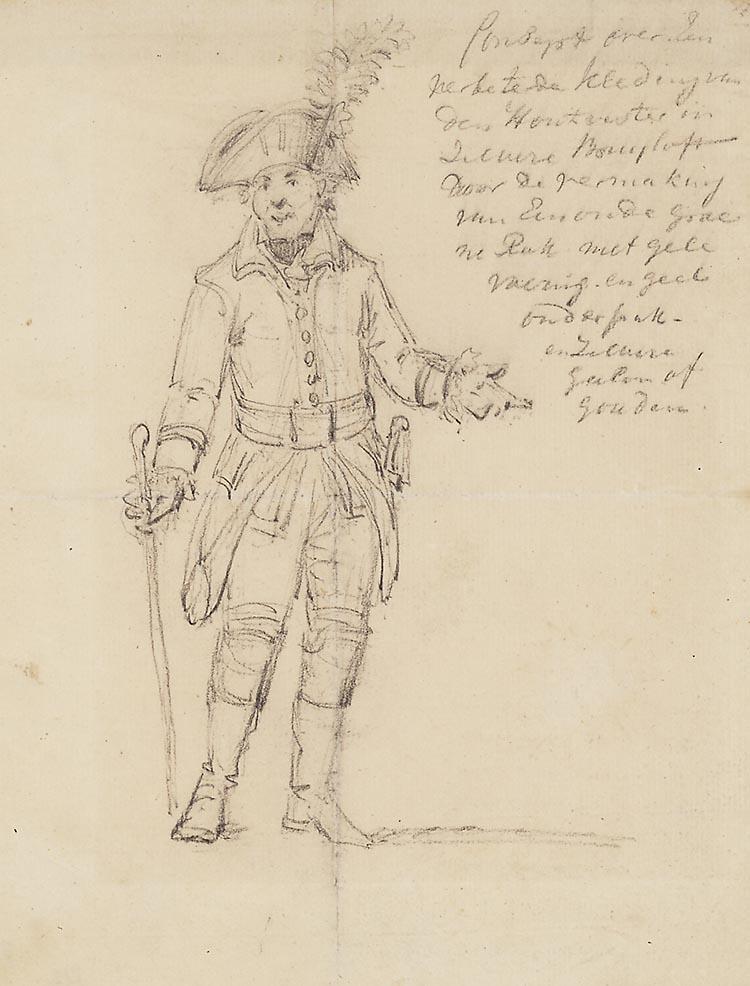 Consept over Een
verbeterde kleding van
den Houtvester in
Zilvere
door de vermaking
van Een ronde groe
ne Rok met gele
voering en geel
onderpak -
en Zilvere
galon of
gouden.